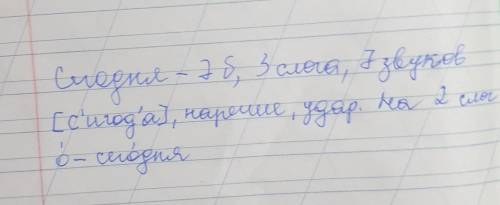 Сигодня - 7 б, 3 слога, 7 звуков
[с'игод'а], наречие, удар. на 2 слог
о́ - сиго́дня